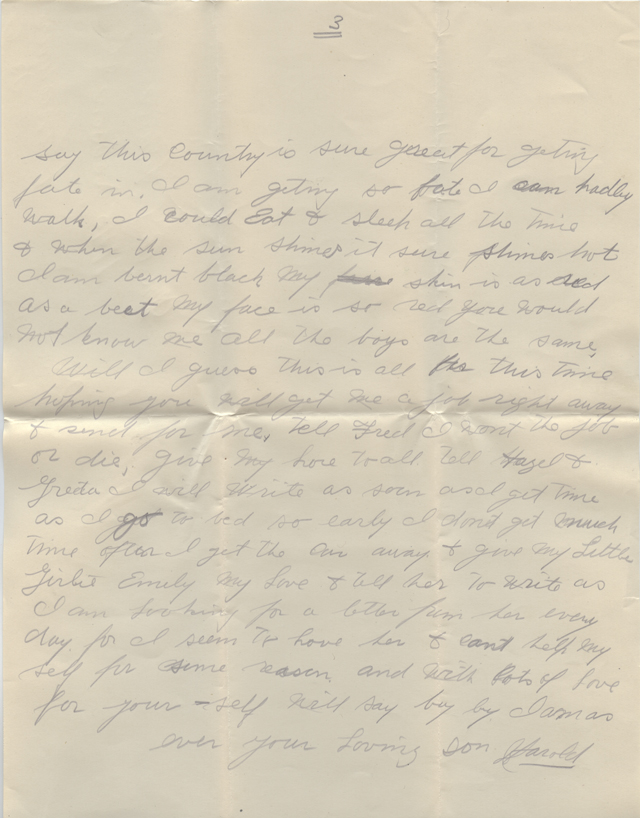 3
say this Country is sure great for geting
fate in. I am geting so fate I can hadley
walk, I could Eat & sleep all the time
& when the sun shines it sure shines hot
I am bernt black my skin is as red
as a beet my face is so red you would
not know me all the boys are the same,
Will I guess this is all this time
hoping you will get me a job right away
& send for me, tell Fred I want the job
or die, give my love to all tell Hazel &
Greda I will write as soon as I get time
as I go to bed so early I dont get much
time after I get the away & give my Little
Girlie Emily my Love & tell her to write as
I am Looking for a letter from her every
day for I seem to love her & cant help my
self for some reason, and with lots of Love
for your-self will say by by I am as
ever your Loving son Harold